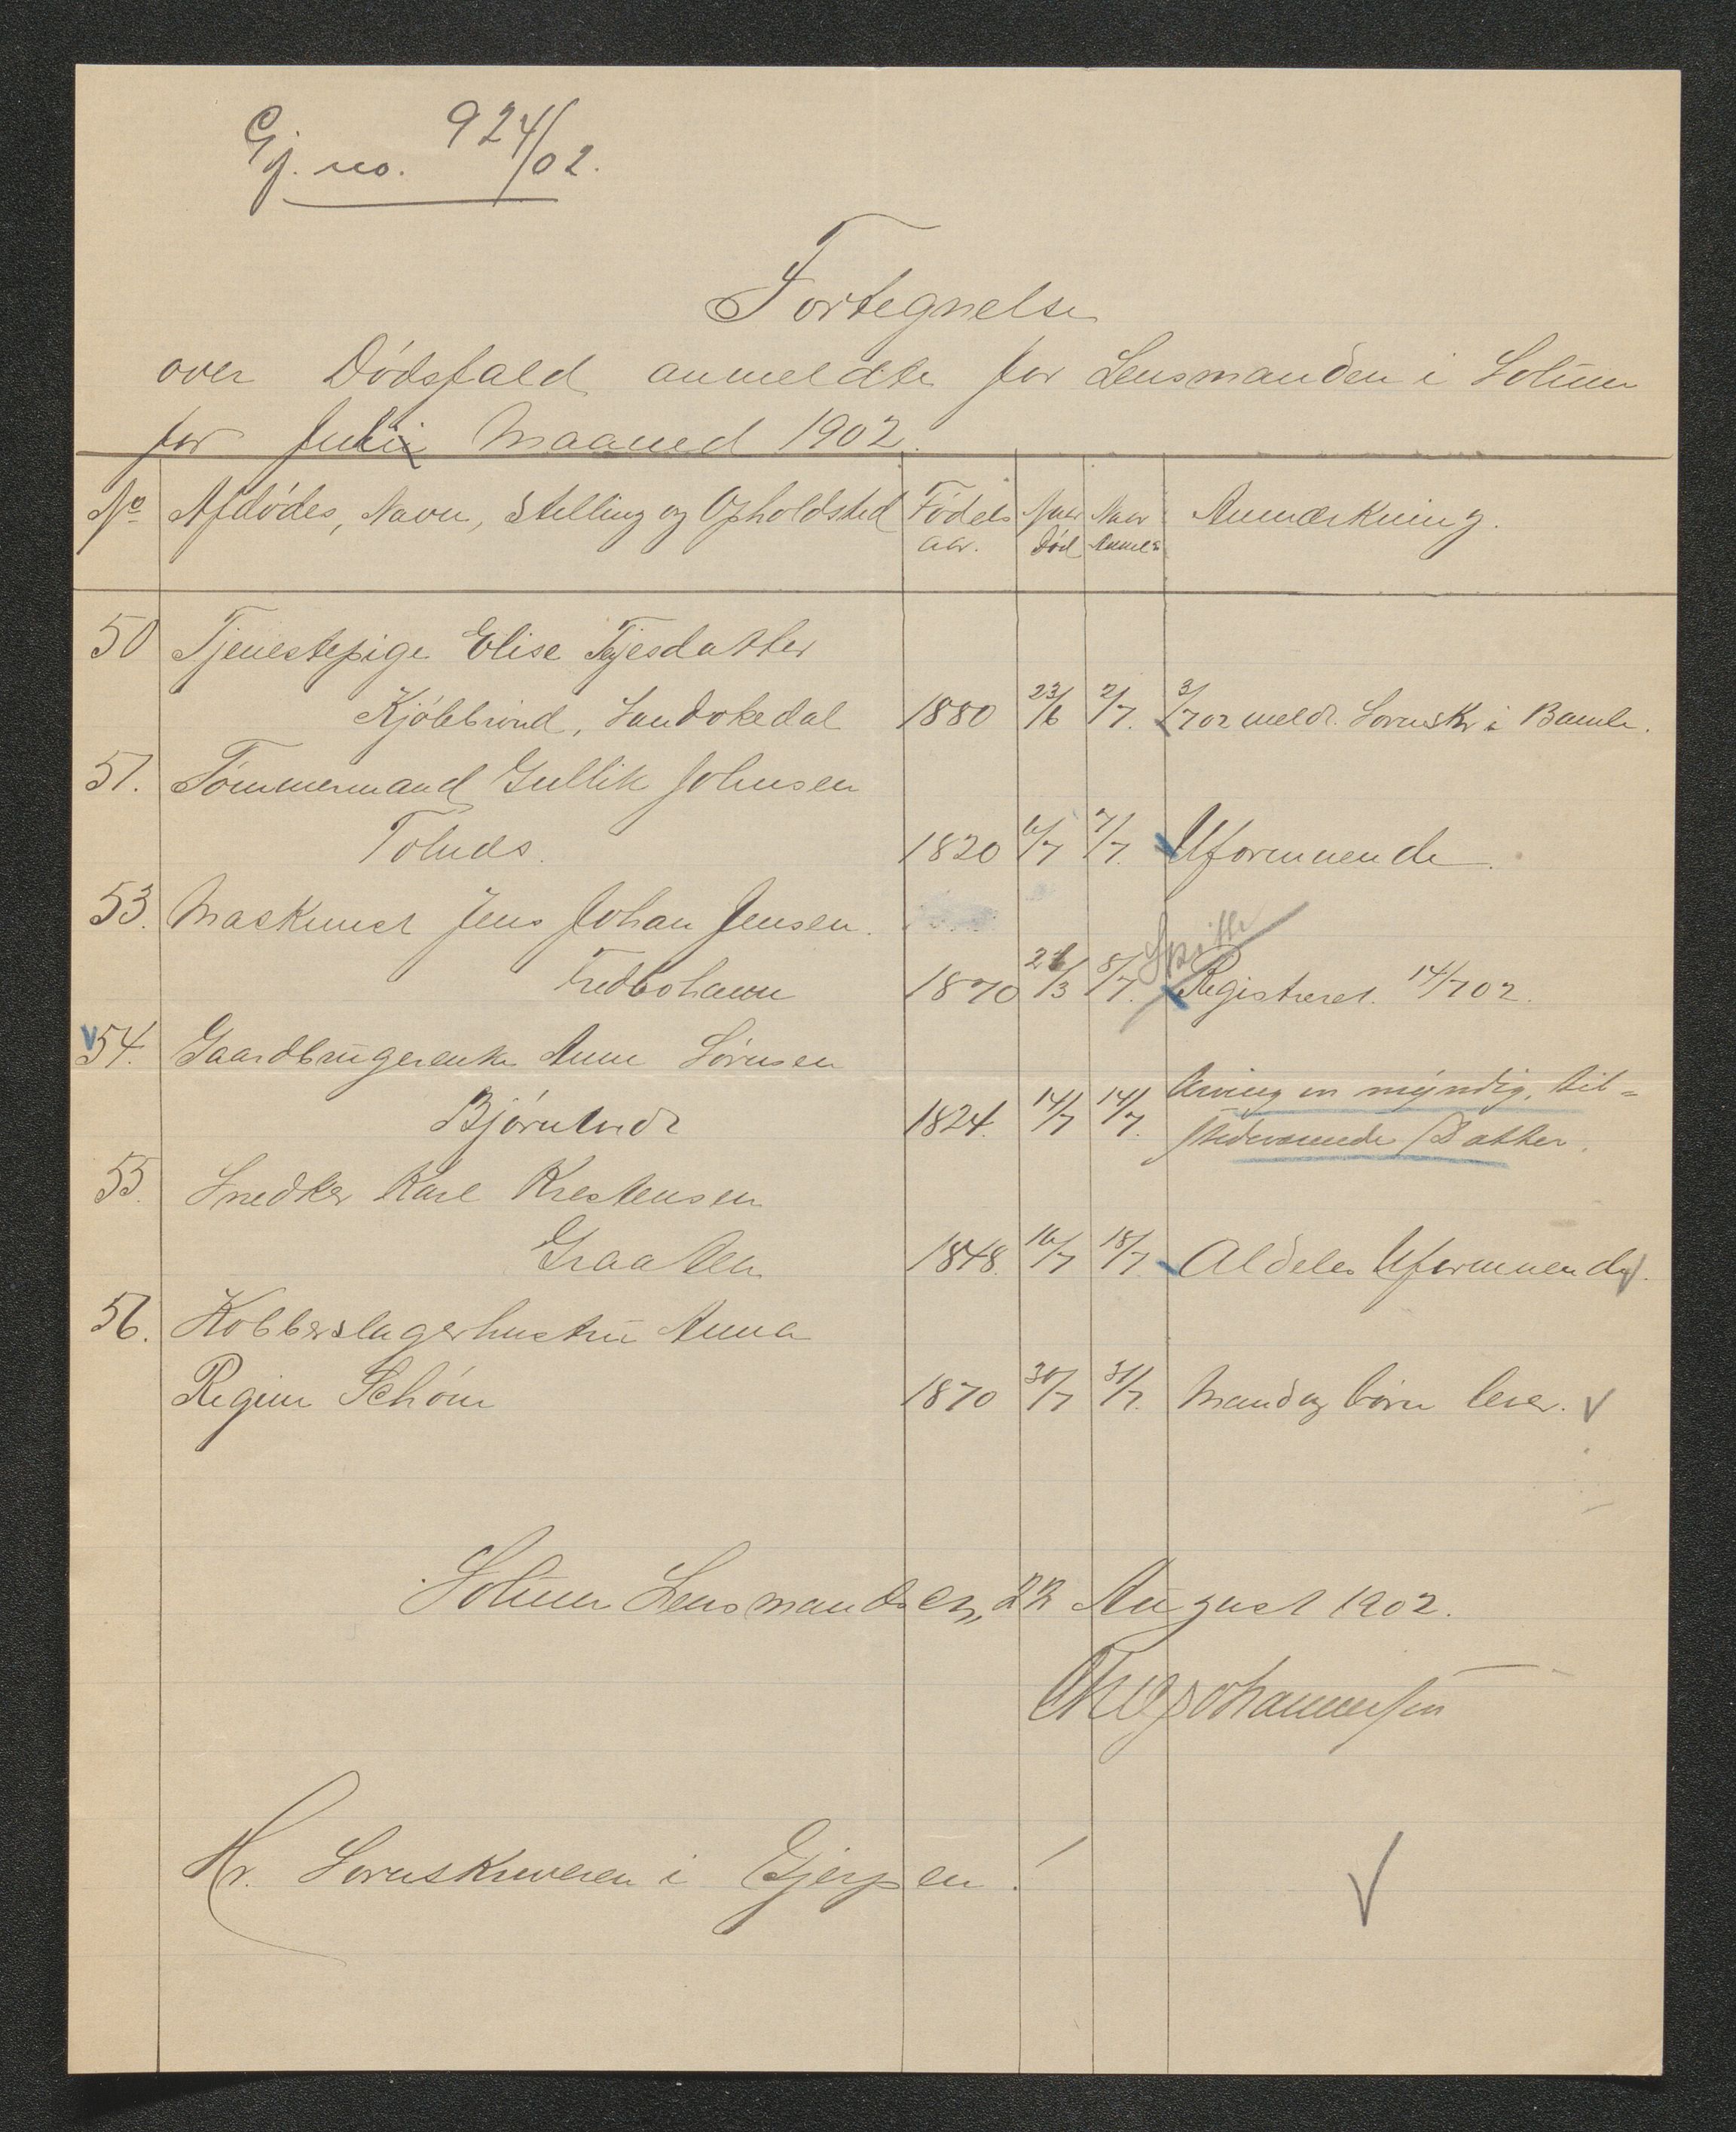 Gj. no. 924/02.
Fortegnelse
over Dødsfald anmeldte for Lensmanden i Solum
for Juli Maaned 1902.
No Afdødes, Navn, Stilling og Opholdsted Fødels aar. Naar Død Naar Anmel. Anmærkning.
50 Tjenestepige Elise Tejesdatter
Kjølebrønd, Sandøkedal 1880 23/6 2/7. 3/702 meldt Sorenskr i Bamle.
51. Tømmermand Gullik Johnsen
Tolnds. 1820 6/7 7/7. Uformuende.
53. Maskinist Jens Johan Jensen.
1870 /3 8/7. Skifte Registreret 14/702.
54. Gaardbrugerenke Anne Sørnsen
Bjørntvedt 1824. 14/7 14/7. Arving en myndig, til=
stedeværende Datter.
55. Snedker Karl Kristensen
Graaten 1848. 16/7 18/7 Aldeles Uformuende.
56. Kobberslagerhustru Anna
Regine Schøne 1870 30/7 31/7. Mand og børn lever.
Solum Lensmandsen, 22 August 1902.
Johannessen
Hr. Sorenskriveren i Gjerpen!